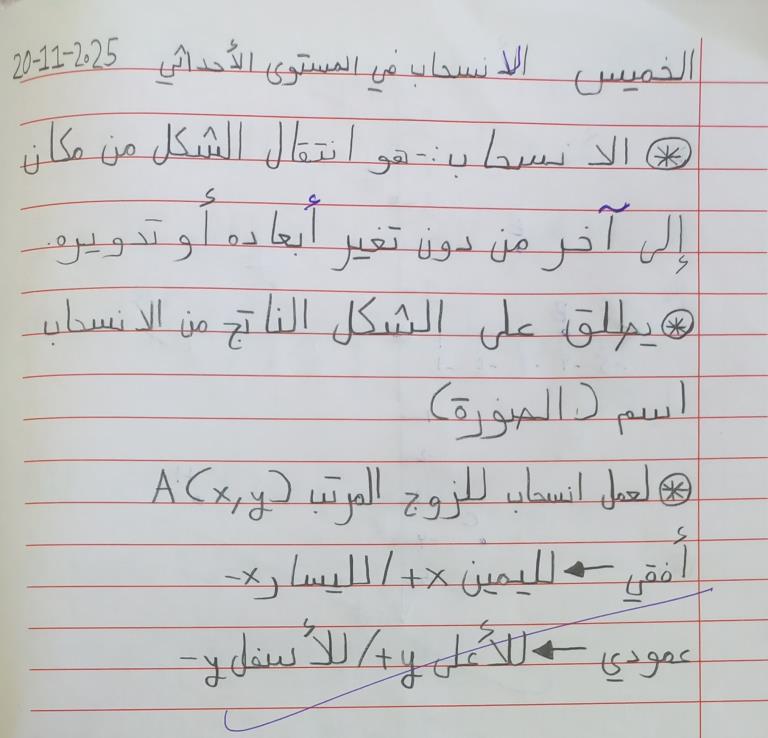 الخميس الانسحاب في المستوى الأحداثي 20-11-2025
⊛ الانسحاب:- هو انتقال الشكل من مكان
إلى آخر من دون تغير أبعاده أو تدويره.
⊛ يطلق على الشكل الناتج من الانسحاب
اسم (الصورة)
⊛ لعمل انسحاب للزوج المرتب A(x,y)
أفقي ← لليمين x+ / لليسار x-
عمودي ← للأعلى y+ / للأسفل y-